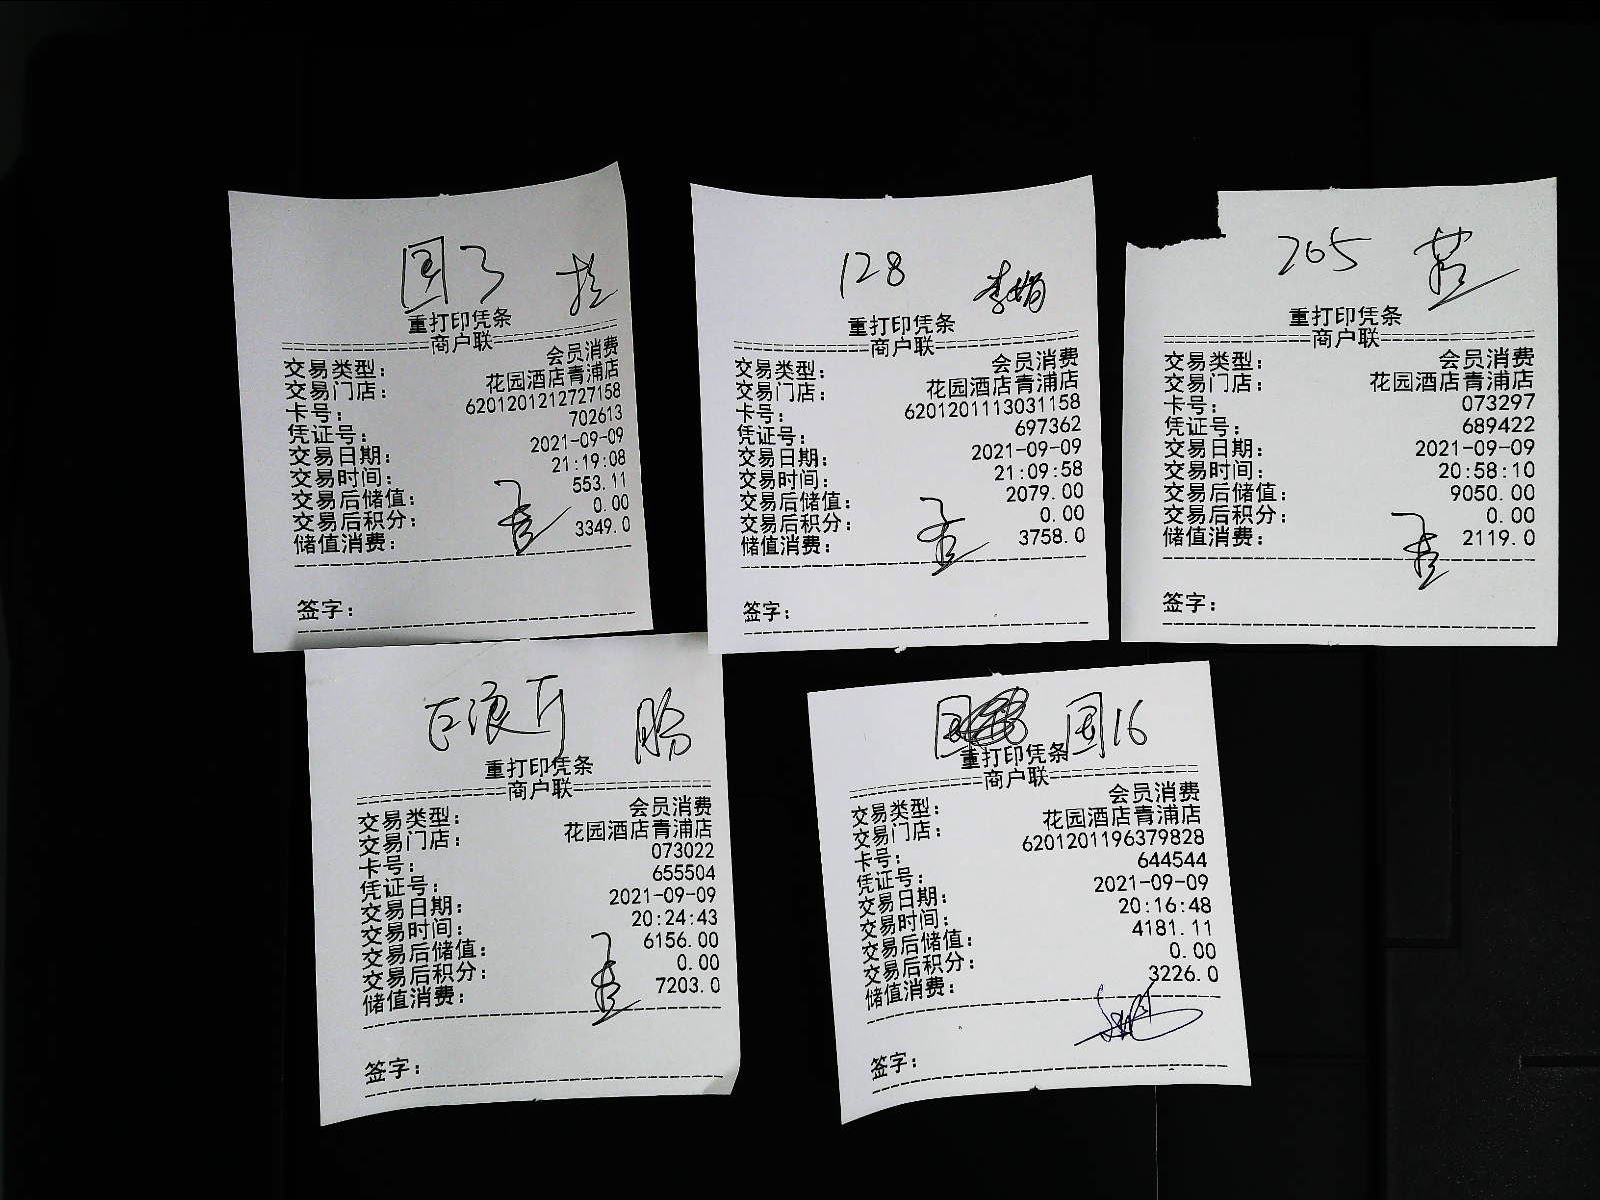 国3
重打印凭条
商户联
交易类型： 会员消费
交易门店： 花园酒店青浦店
卡号： 6201201212727158
凭证号： 702613
交易日期： 2021-09-09
交易时间： 21:19:08
交易后储值： 553.11
交易后积分： 0.00
储值消费： 3349.0
签字：
128 李娟
重打印凭条
商户联
交易类型： 会员消费
交易门店： 花园酒店青浦店
卡号： 6201201113031158
凭证号： 697362
交易日期： 2021-09-09
交易时间： 21:09:58
交易后储值： 2079.00
交易后积分： 0.00
储值消费： 3758.0
签字：
205
重打印凭条
商户联
交易类型： 会员消费
交易门店： 花园酒店青浦店
卡号： 073297
凭证号： 689422
交易日期： 2021-09-09
交易时间： 20:58:10
交易后储值： 9050.00
交易后积分： 0.00
储值消费： 2119.0
签字：
重打印凭条
商户联
交易类型： 会员消费
交易门店： 花园酒店青浦店
卡号： 073022
凭证号： 655504
交易日期： 2021-09-09
交易时间： 20:24:43
交易后储值： 6156.00
交易后积分： 0.00
储值消费： 7203.0
签字：
国16
重打印凭条
商户联
交易类型： 会员消费
交易门店： 花园酒店青浦店
卡号： 6201201196379828
凭证号： 644544
交易日期： 2021-09-09
交易时间： 20:16:48
交易后储值： 4181.11
交易后积分： 0.00
储值消费： 3226.0
签字：